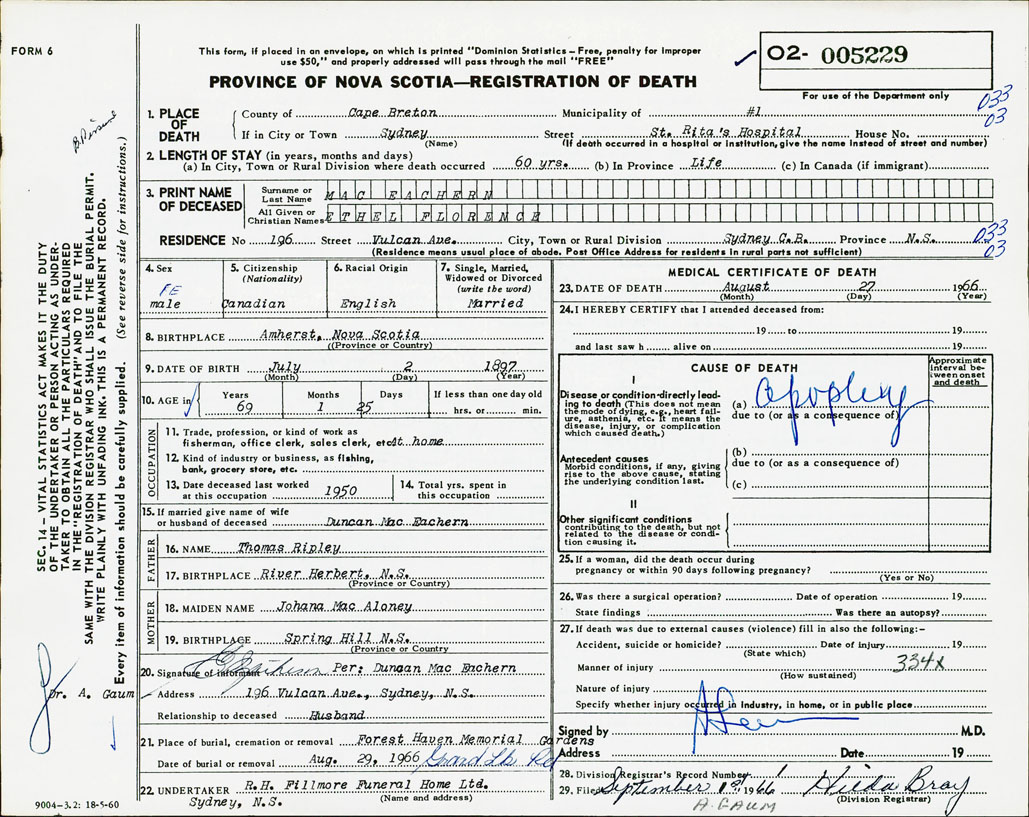 FORM 6
This form, if placed in an envelope, on which is printed "Dominion Statistics – Free, penalty for improper
use $50," and properly addressed will pass through the mail "FREE"
PROVINCE OF NOVA SCOTIA—REGISTRATION OF DEATH
02- 005229
For use of the Department only
033
03
1. PLACE OF DEATH
County of Cape Breton Municipality of #1
If in City or Town Sydney Street St. Rita's Hospital House No.
(Name) (If death occurred in a hospital or institution, give the name instead of street and number)
2. LENGTH OF STAY (in years, months and days)
(a) In City, Town or Rural Division where death occurred 60 yrs. (b) In Province Life (c) In Canada (if immigrant)
3. PRINT NAME OF DECEASED
Surname or Last Name MAC EACHERN
All Given or Christian Names ETHEL FLORENCE
033
03
RESIDENCE No 196 Street Vulcan Ave. City, Town or Rural Division Sydney C.B. Province N.S.
(Residence means usual place of abode. Post Office Address for residents in rural parts not sufficient)
4. Sex FE male
5. Citizenship (Nationality) Canadian
6. Racial Origin English
7. Single, Married, Widowed or Divorced (write the word) Married
8. BIRTHPLACE Amherst, Nova Scotia
((Province or Country)
9. DATE OF BIRTH July 2 1897
(Month) (Day) (Year)
10. AGE in Years 69 Months 1 Days 25 If less than one day old hrs. or min.
OCCUPATION
11. Trade, profession, or kind of work as
fisherman, office clerk, sales clerk, etc. At home
12. Kind of industry or business, as fishing,
bank, grocery store, etc.
13. Date deceased last worked at this occupation 1950
14. Total yrs. spent in this occupation
15. If married give name of wife
or husband of deceased Duncan Mac Eachern
FATHER
16. NAME Thomas Ripley
17. BIRTHPLACE River Herbert, N.S.
(Province or Country)
MOTHER
18. MAIDEN NAME Johana Mac Aloney
19. BIRTHPLACE Spring Hill N.S.
(Province or Country)
20. Signature of informant Per: Duncan Mac Eachern
Address 196 Vulcan Ave., Sydney, N.S.
Relationship to deceased Husband
21. Place of burial, cremation or removal Forest Haven Memorial Gardens
Date of burial or removal Aug. 29, 1966
22. UNDERTAKER R.H. Fillmore Funeral Home Ltd.
Sydney, N.S. (Name and address)
9004-3.2: 18-5-60
MEDICAL CERTIFICATE OF DEATH
23. DATE OF DEATH August 27 1966
(Month) (Day) (Year)
24. I HEREBY CERTIFY that I attended deceased from:
19 to 19
and last saw h alive on 19
CAUSE OF DEATH
Approximate interval between onset and death
I
Disease or condition directly leading to death (This does not mean the mode of dying, e.g., heart failure, asthenia, etc. It means the disease, injury, or complication which caused death.)
(a) Apoplexy
due to (or as a consequence of)
Antecedent causes
Morbid conditions, if any, giving rise to the above cause, stating the underlying condition last.
(b)
due to (or as a consequence of)
(c)
II
Other significant conditions
contributing to the death, but not related to the disease or condition causing it.
25. If a woman, did the death occur during
pregnancy or within 90 days following pregnancy?
(Yes or No)
26. Was there a surgical operation? Date of operation 19
State findings Was there an autopsy?
27. If death was due to external causes (violence) fill in also the following:–
Accident, suicide or homicide? Date of injury 19
(State which)
Manner of injury 334x
(How sustained)
Nature of injury
Specify whether injury occurred in industry, in home, or in public place
Signed by M.D.
Address Date 19
28. Division Registrar's Record Number
29. Filed September 1st 1966 Hilda Bray
(Division Registrar)
A. GAUM
SEC. 14 – VITAL STATISTICS ACT MAKES IT THE DUTY
OF THE UNDERTAKER OR PERSON ACTING AS UNDER-
TAKER TO OBTAIN ALL THE PARTICULARS REQUIRED
IN THE "REGISTRATION OF DEATH" AND TO FILE THE
SAME WITH THE DIVISION REGISTRAR WHO SHALL ISSUE THE BURIAL PERMIT.
WRITE PLAINLY WITH UNFADING INK. THIS IS A PERMANENT RECORD.
Every item of information should be carefully supplied. (See reverse side for instructions.)
Dr. A. Gaum